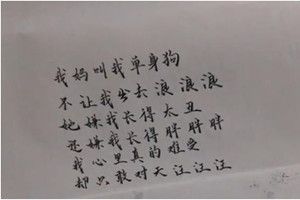 我妈叫我单身狗
不让我出去浪浪浪
她嫌我长得太丑
还嫌我长得胖胖胖
我心里真的难受
却只敢对天汪汪汪